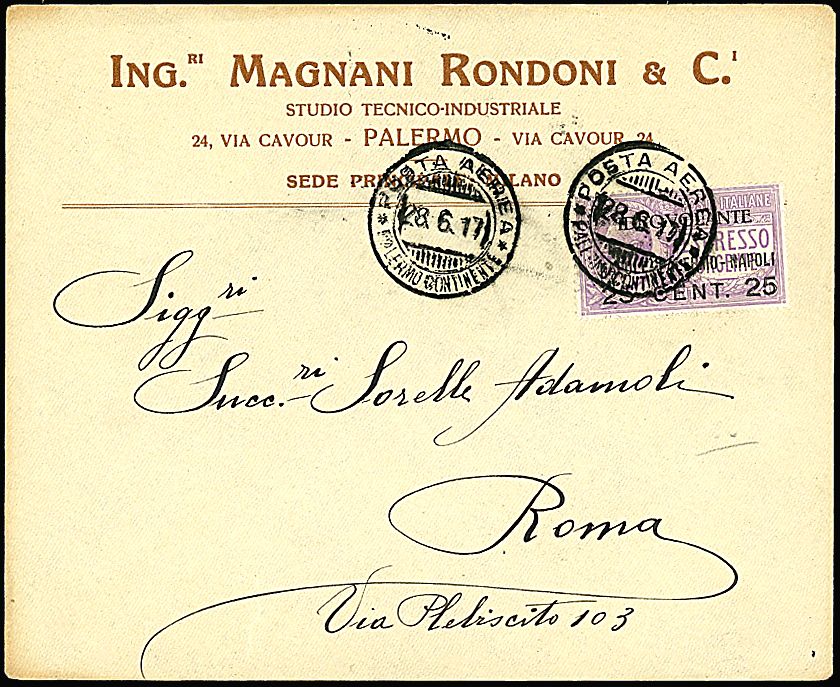 ING.RI MAGNANI RONDONI & C.I
STUDIO TECNICO-INDUSTRIALE
24, VIA CAVOUR - PALERMO - VIA CAVOUR 24
SEDE MILANO
POSTA AEREA
28.6.17
PALERMO CONTINENTE
POSTA AEREA
28.6.17
CONTINENTE
ITALIANE
NAPOLI
25 CENT. 25
Sigg.ri
Succ.ri Sorelle Adamoli
Roma
Via Plebiscito 103